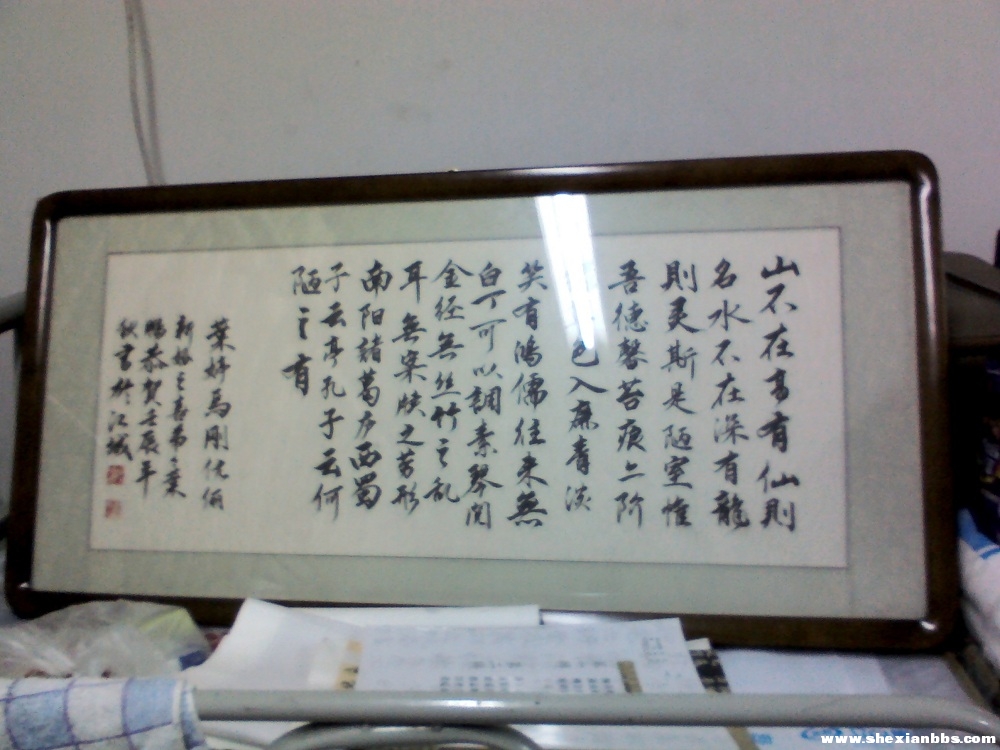 山不在高有仙則
名水不在深有龍
則灵斯是陋室惟
吾德馨苔痕上阶
色入廉青淡
笑有鴻儒往来無
白丁可以調素琴閱
金经無丝竹之乱
耳無案牍之劳形
南阳諸葛庐西蜀
子云亭孔子云何
陋之有
葉婷馬刚伉俪
新婚之喜弟葉
鵬恭贺壬辰年
秋書於江城
www.shexianbbs.com